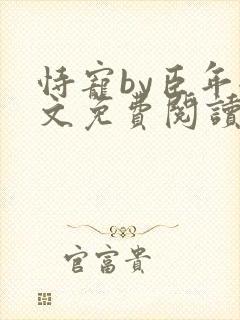 恃寵by臣年
文免費閱讀
官富貴